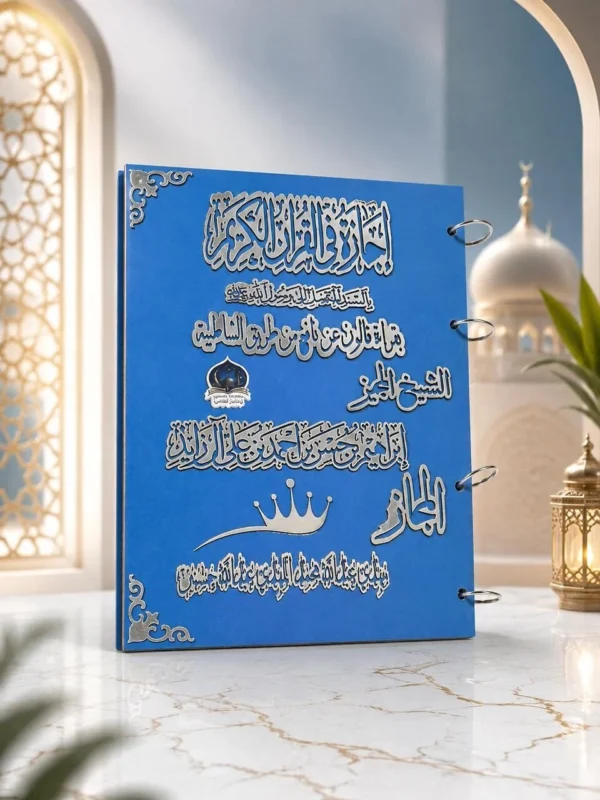 إجازة في القرآن الكريم
بالسند المتصل إلى رسول الله ﷺ
بقراءة قالون عن نافع من طريق الشاطبية
الشيخ المجيز
إبراهيم بن حسن بن أحمد بن علي آل زايد
المجاز